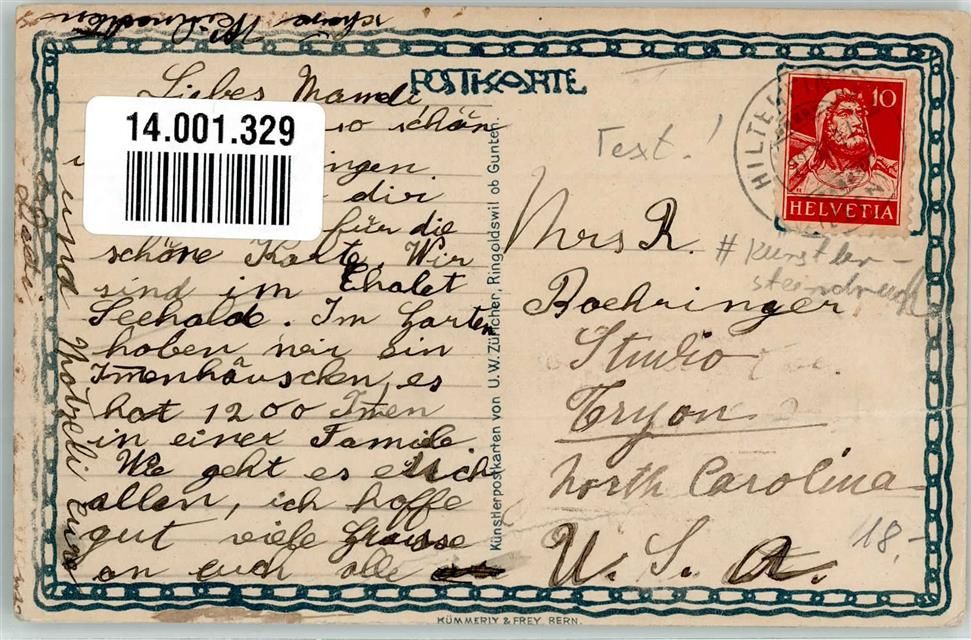 schöne
POSTKARTE
Liebes Mandi
14.001.329
so schön
ingen
dir
für die
schöne Karte. Wir
sind im Chalet
Seehalde. Im Garten
haben wir ein
Imenhäuschen, es
hat 1200 Imen
in einer Familie
Wie geht es euch
allen, ich hoffe
gut viele Grüsse
an euch alle
und
Künstlerpostkarten von U. W. Züricher, Ringoldswil ob Gunten.
Text!
HILTE
10
HELVETIA
# Künstler-
steindruck
Mrs R.
Boehringer
Studio
Tryon
North Carolina
U. S. A.
18.-
KÜMMERLY & FREY BERN.